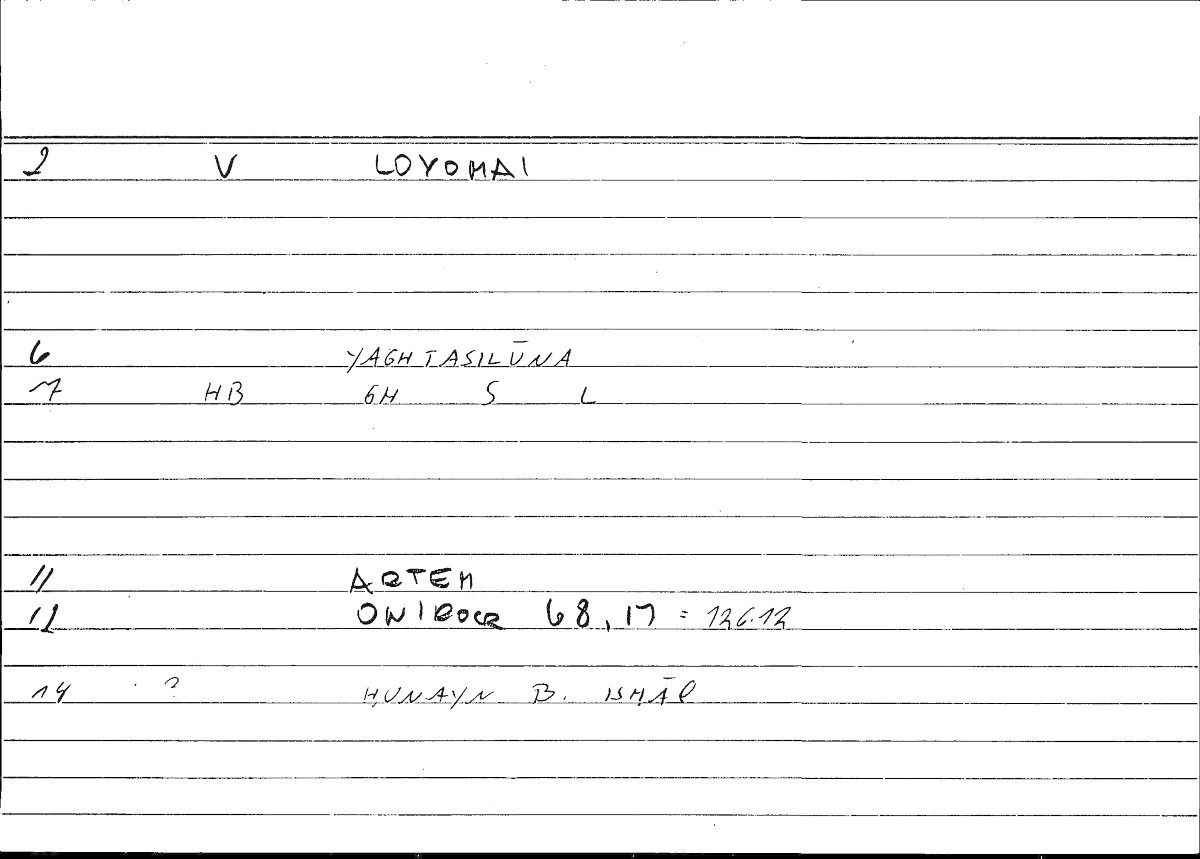 2 V LOYOMAI
6 YAGHTASILŪNA
7 HB GH S L
11 ARTEM
12 ONIROCR 68,17 = 126.12
14 ? ḤUNAYN B. ISḤĀQ